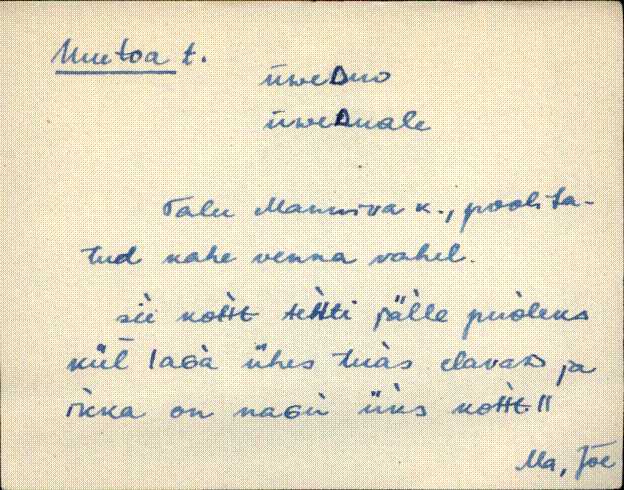 Uuetoa t.
üweᴅuo
üweᴅuale
Talu Manniva k., poolita-
tud kahe venna vahel.
sìi kotìt tetìti jälle pùoleks
kül laGà ühes tùas elavaD ja
ikka on naGù üks kotìt!!
Ma, Jõe